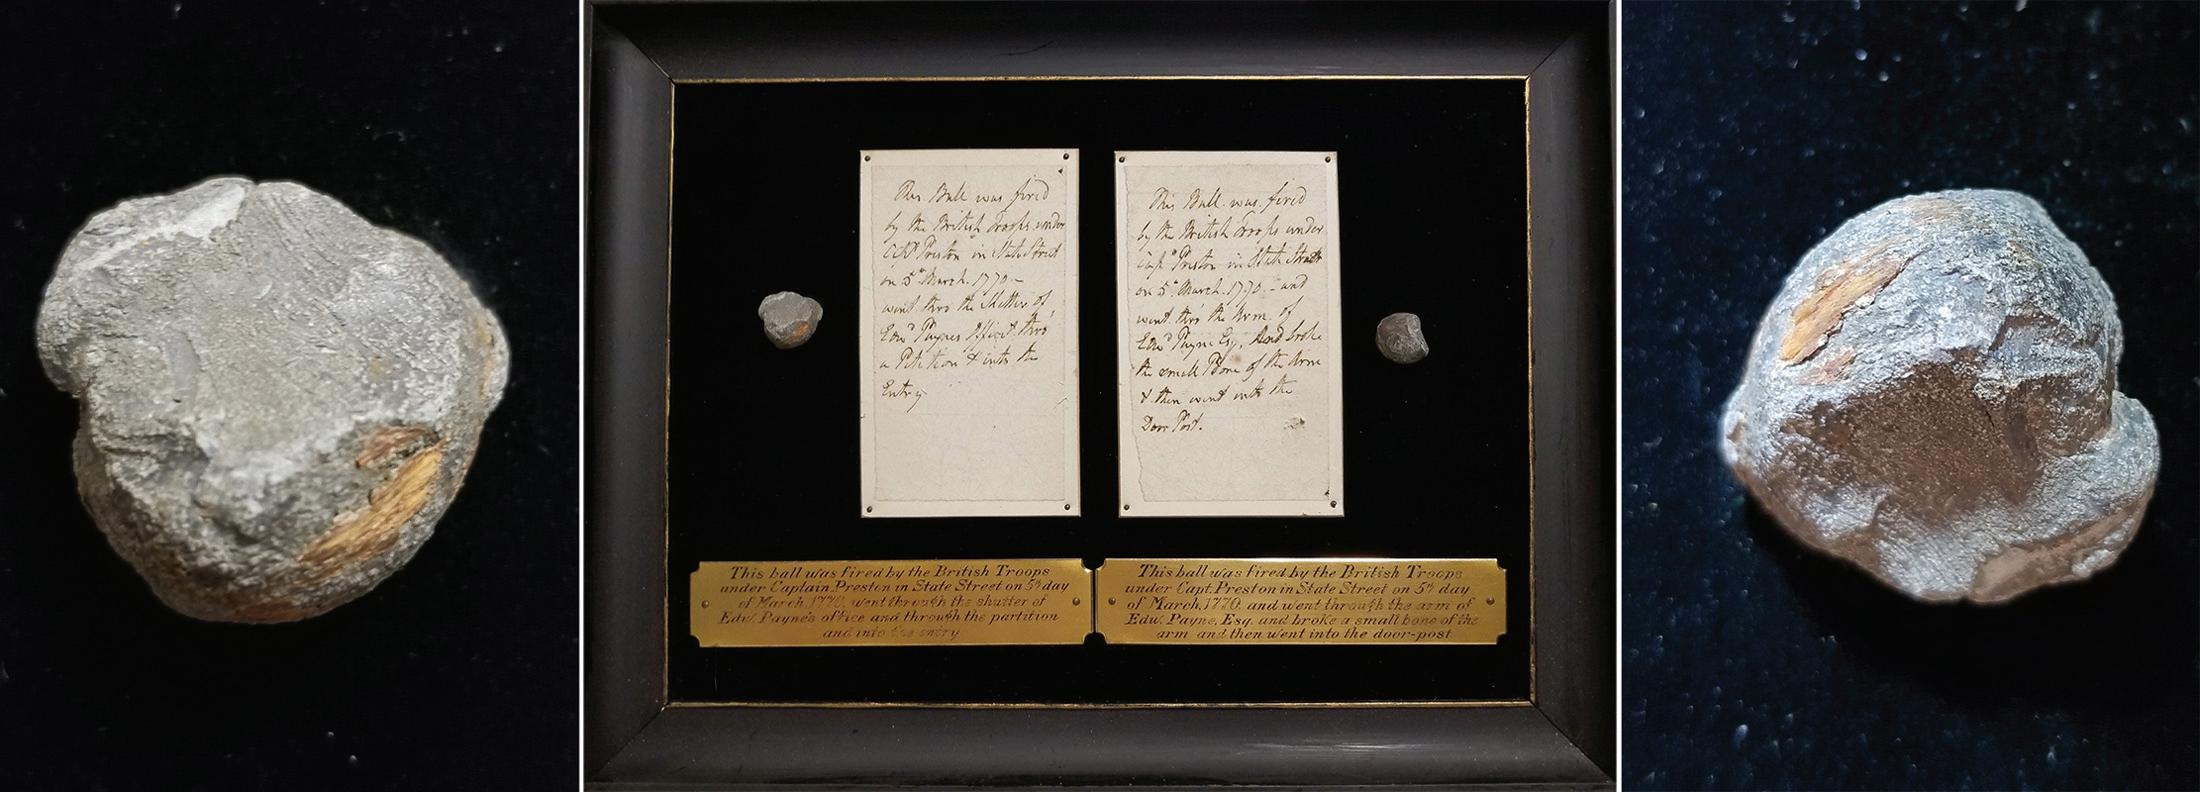 This Ball was fired
by the British Troops under
Preston in State Street
on 5th March. 1770 –
went thro the Shutter of
Edwd Paynes Office & thro
a Petition & into the
Entry
This Ball was fired
by the British Troops under
Capt Preston in State Street
on 5th March. 1770. – and
went thro the Arm of
Edwd Payne Esq. And broke
the small Bone of the Arm
& then went into the
Door Post.
This ball was fired by the British Troops
under Captain Preston in State Street on 5th day
of March, 1770, went through the shutter of
Edw. Payne's office and through the partition
and into the entry
This ball was fired by the British Troops
under Capt. Preston in State Street on 5th day
of March, 1770, and went through the arm of
Edw. Payne, Esq. and broke a small bone of the
arm and then went into the door-post